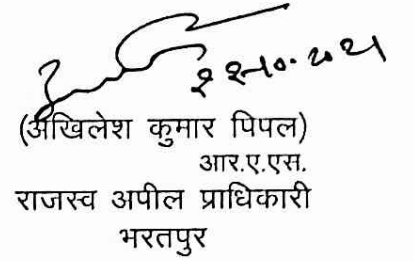 (अखिलेश कुमार पिपल)
आर.ए.एस.
राजस्व अपील प्राधिकारी
भरतपुर